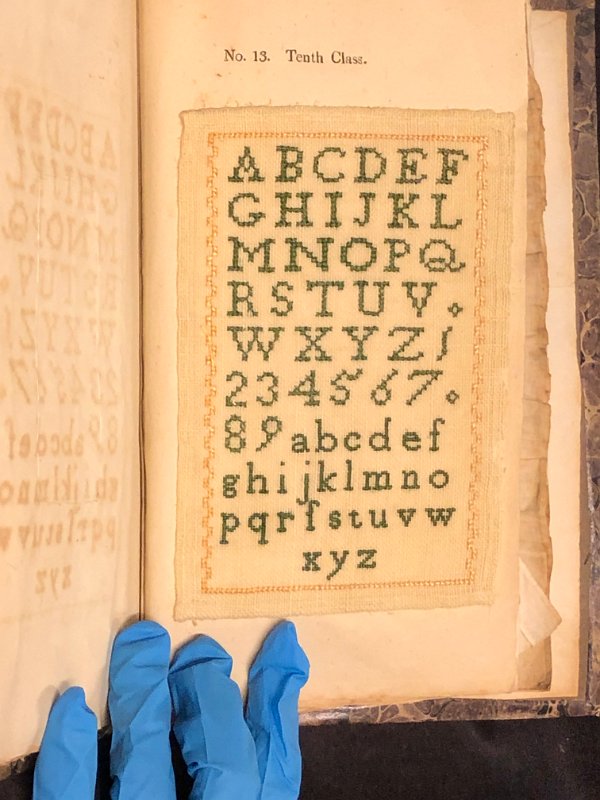 No. 13. Tenth Class.
ABCDEF
GHIJKL
MNOPQ
RSTUV
WXYZ1
234567
89abcdef
ghijklmno
pqrſstuvw
xyz